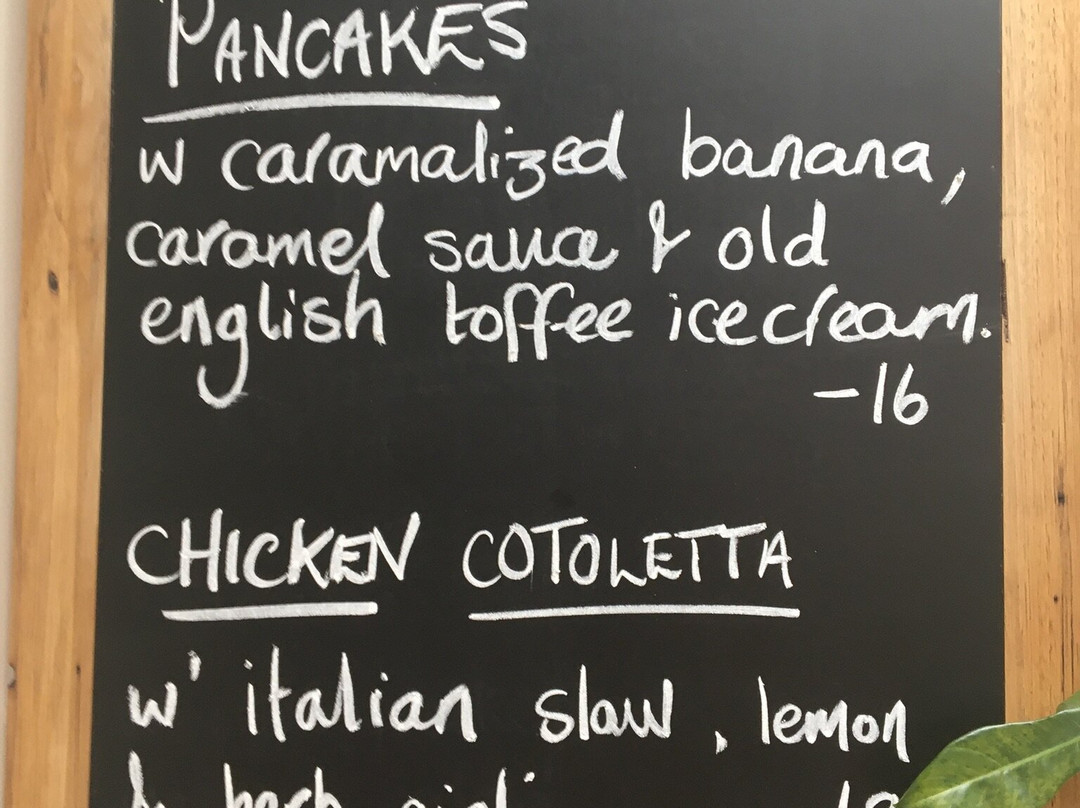 PANCAKES
w caramalized banana,
caramel sauce & old
english toffee icecream.
-16
CHICKEN COTOLETTA
w' italian slaw, lemon
& herb